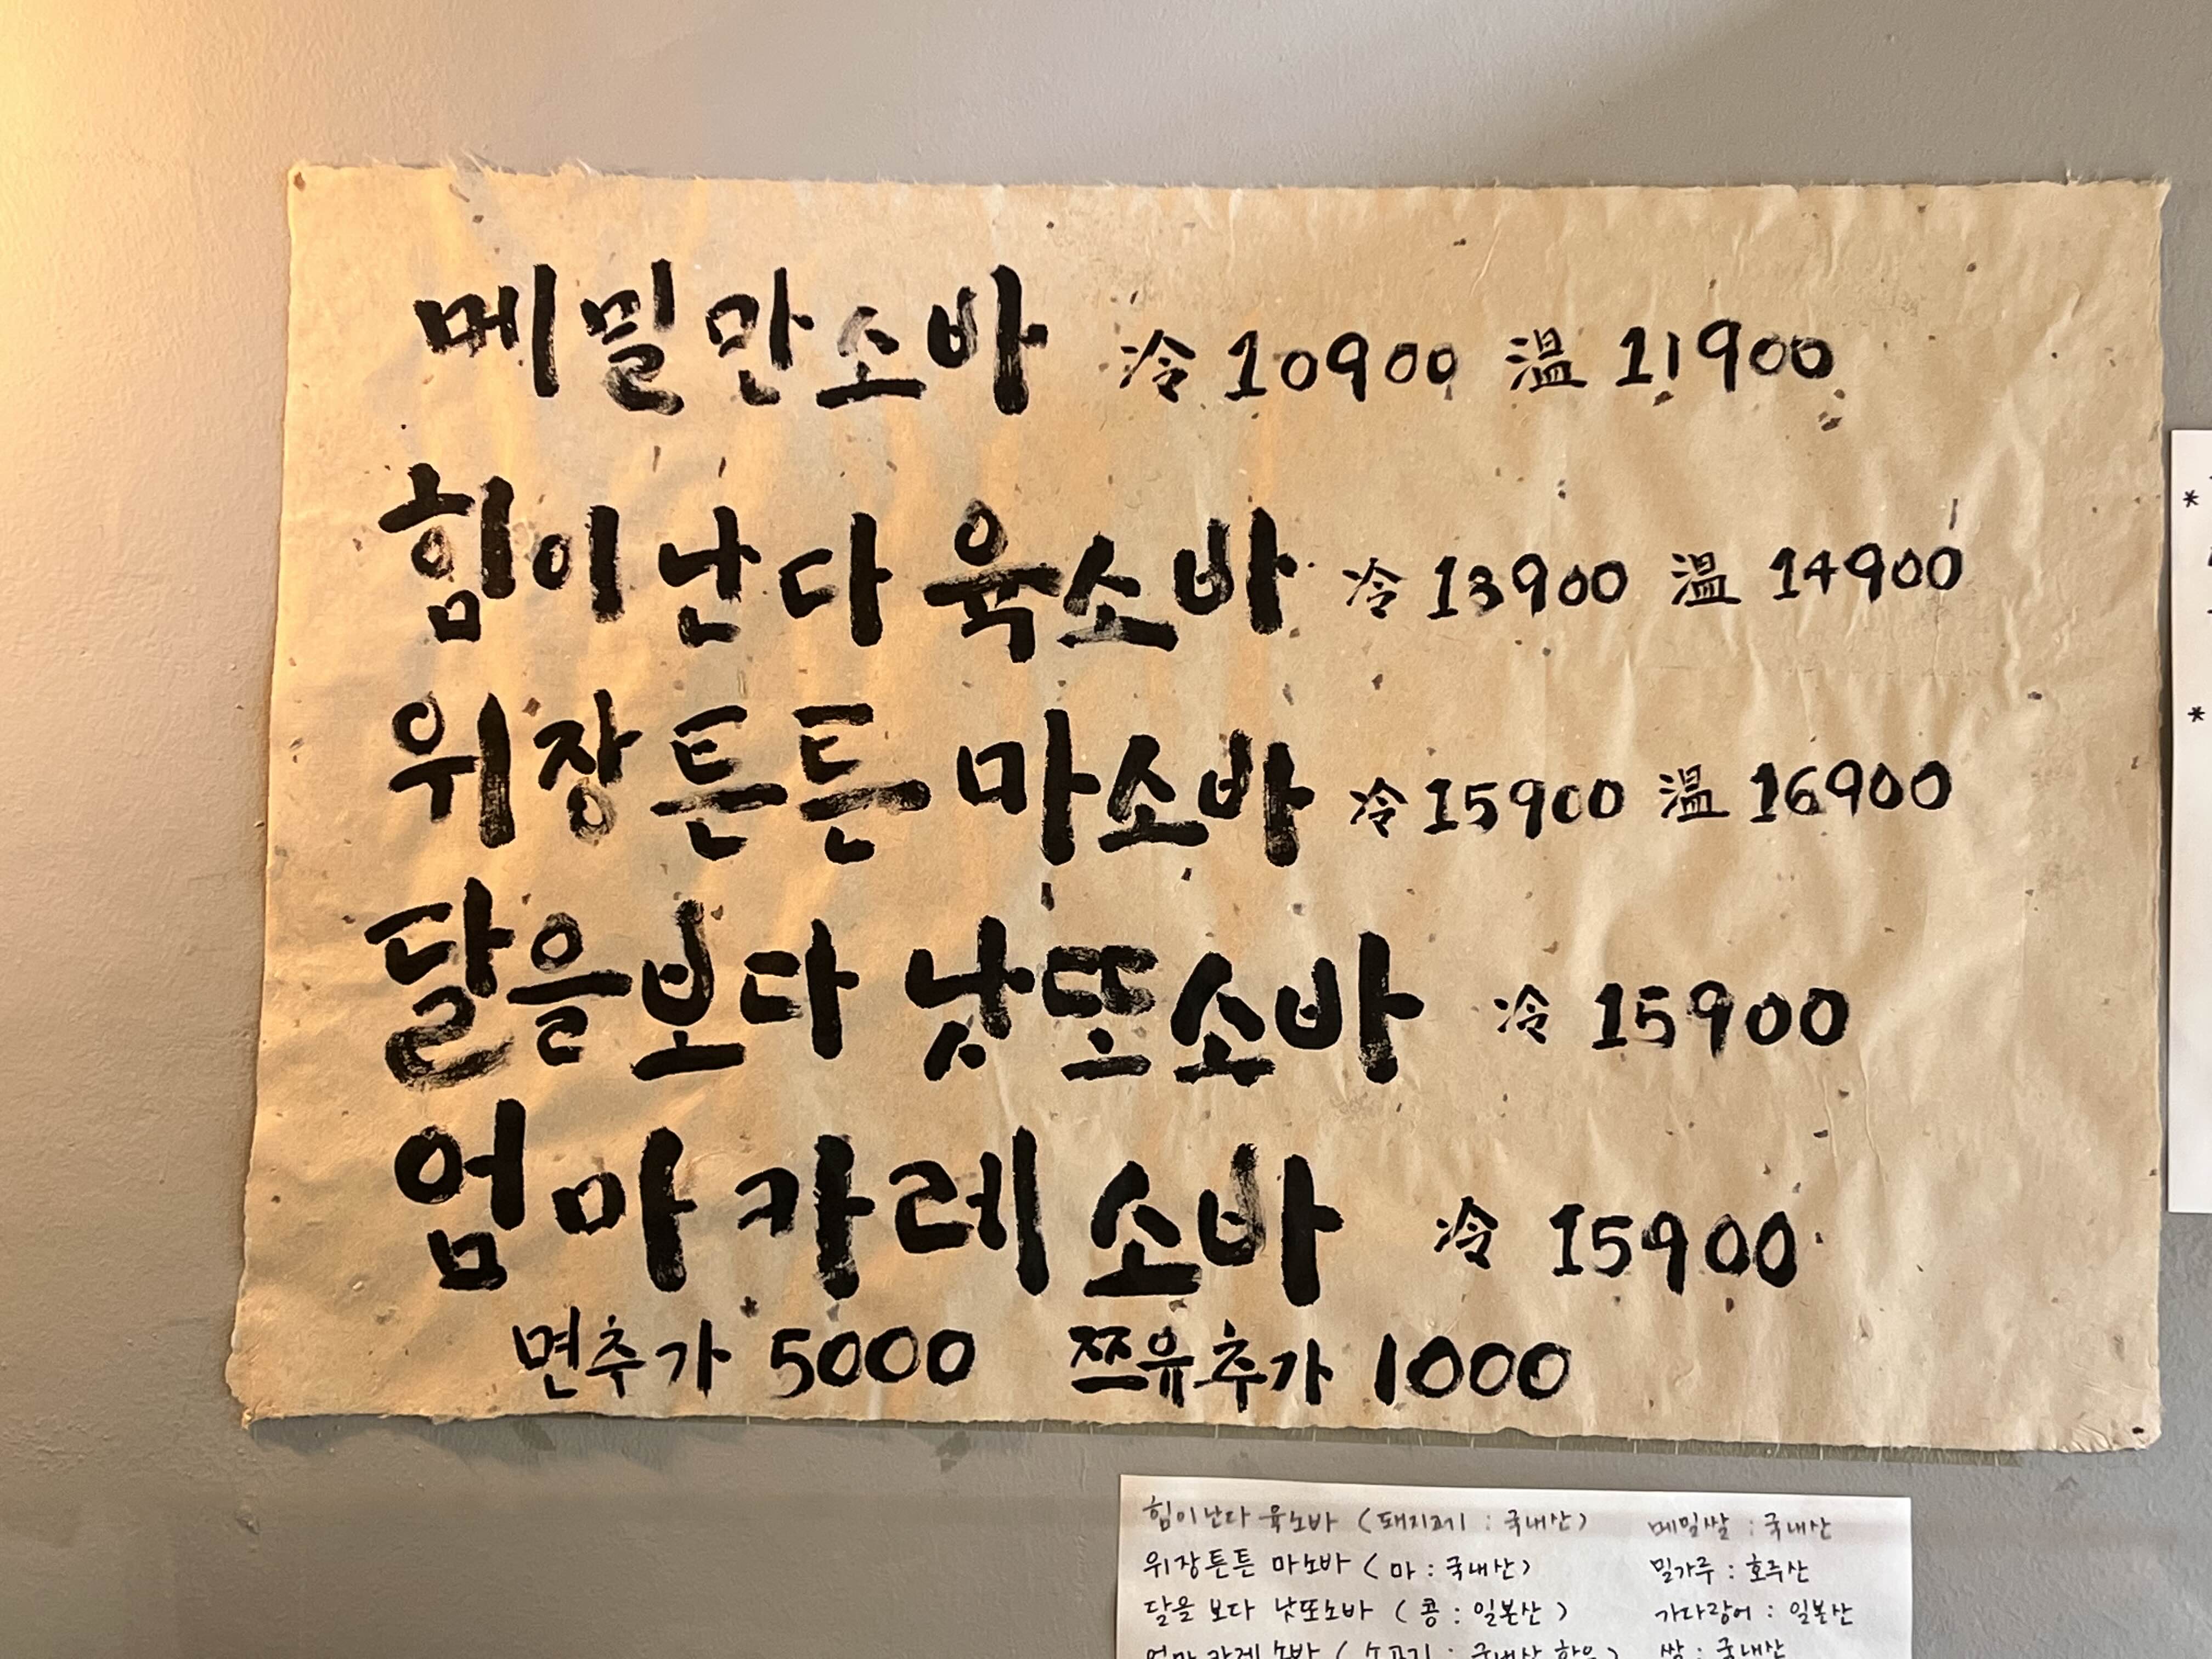 메밀만소바 冷 10900 温 11900
힘이난다 육소바 冷 13900 温 14900
위장튼튼 마소바 冷 15900 温 16900
달을보다 낫또소바 冷 15900
엄마카레소바 冷 15900
면추가 5000 쯔유추가 1000
힘이난다 육소바 (돼지고기 : 국내산) 메밀쌀 : 국내산
위장튼튼 마소바 (마 : 국내산) 밀가루 : 호주산
달을 보다 낫또소바 (콩 : 일본산) 가다랑어 : 일본산
엄마 카레 소바 (소고기 : 국내산 한우) 쌀 : 국내산
*
*